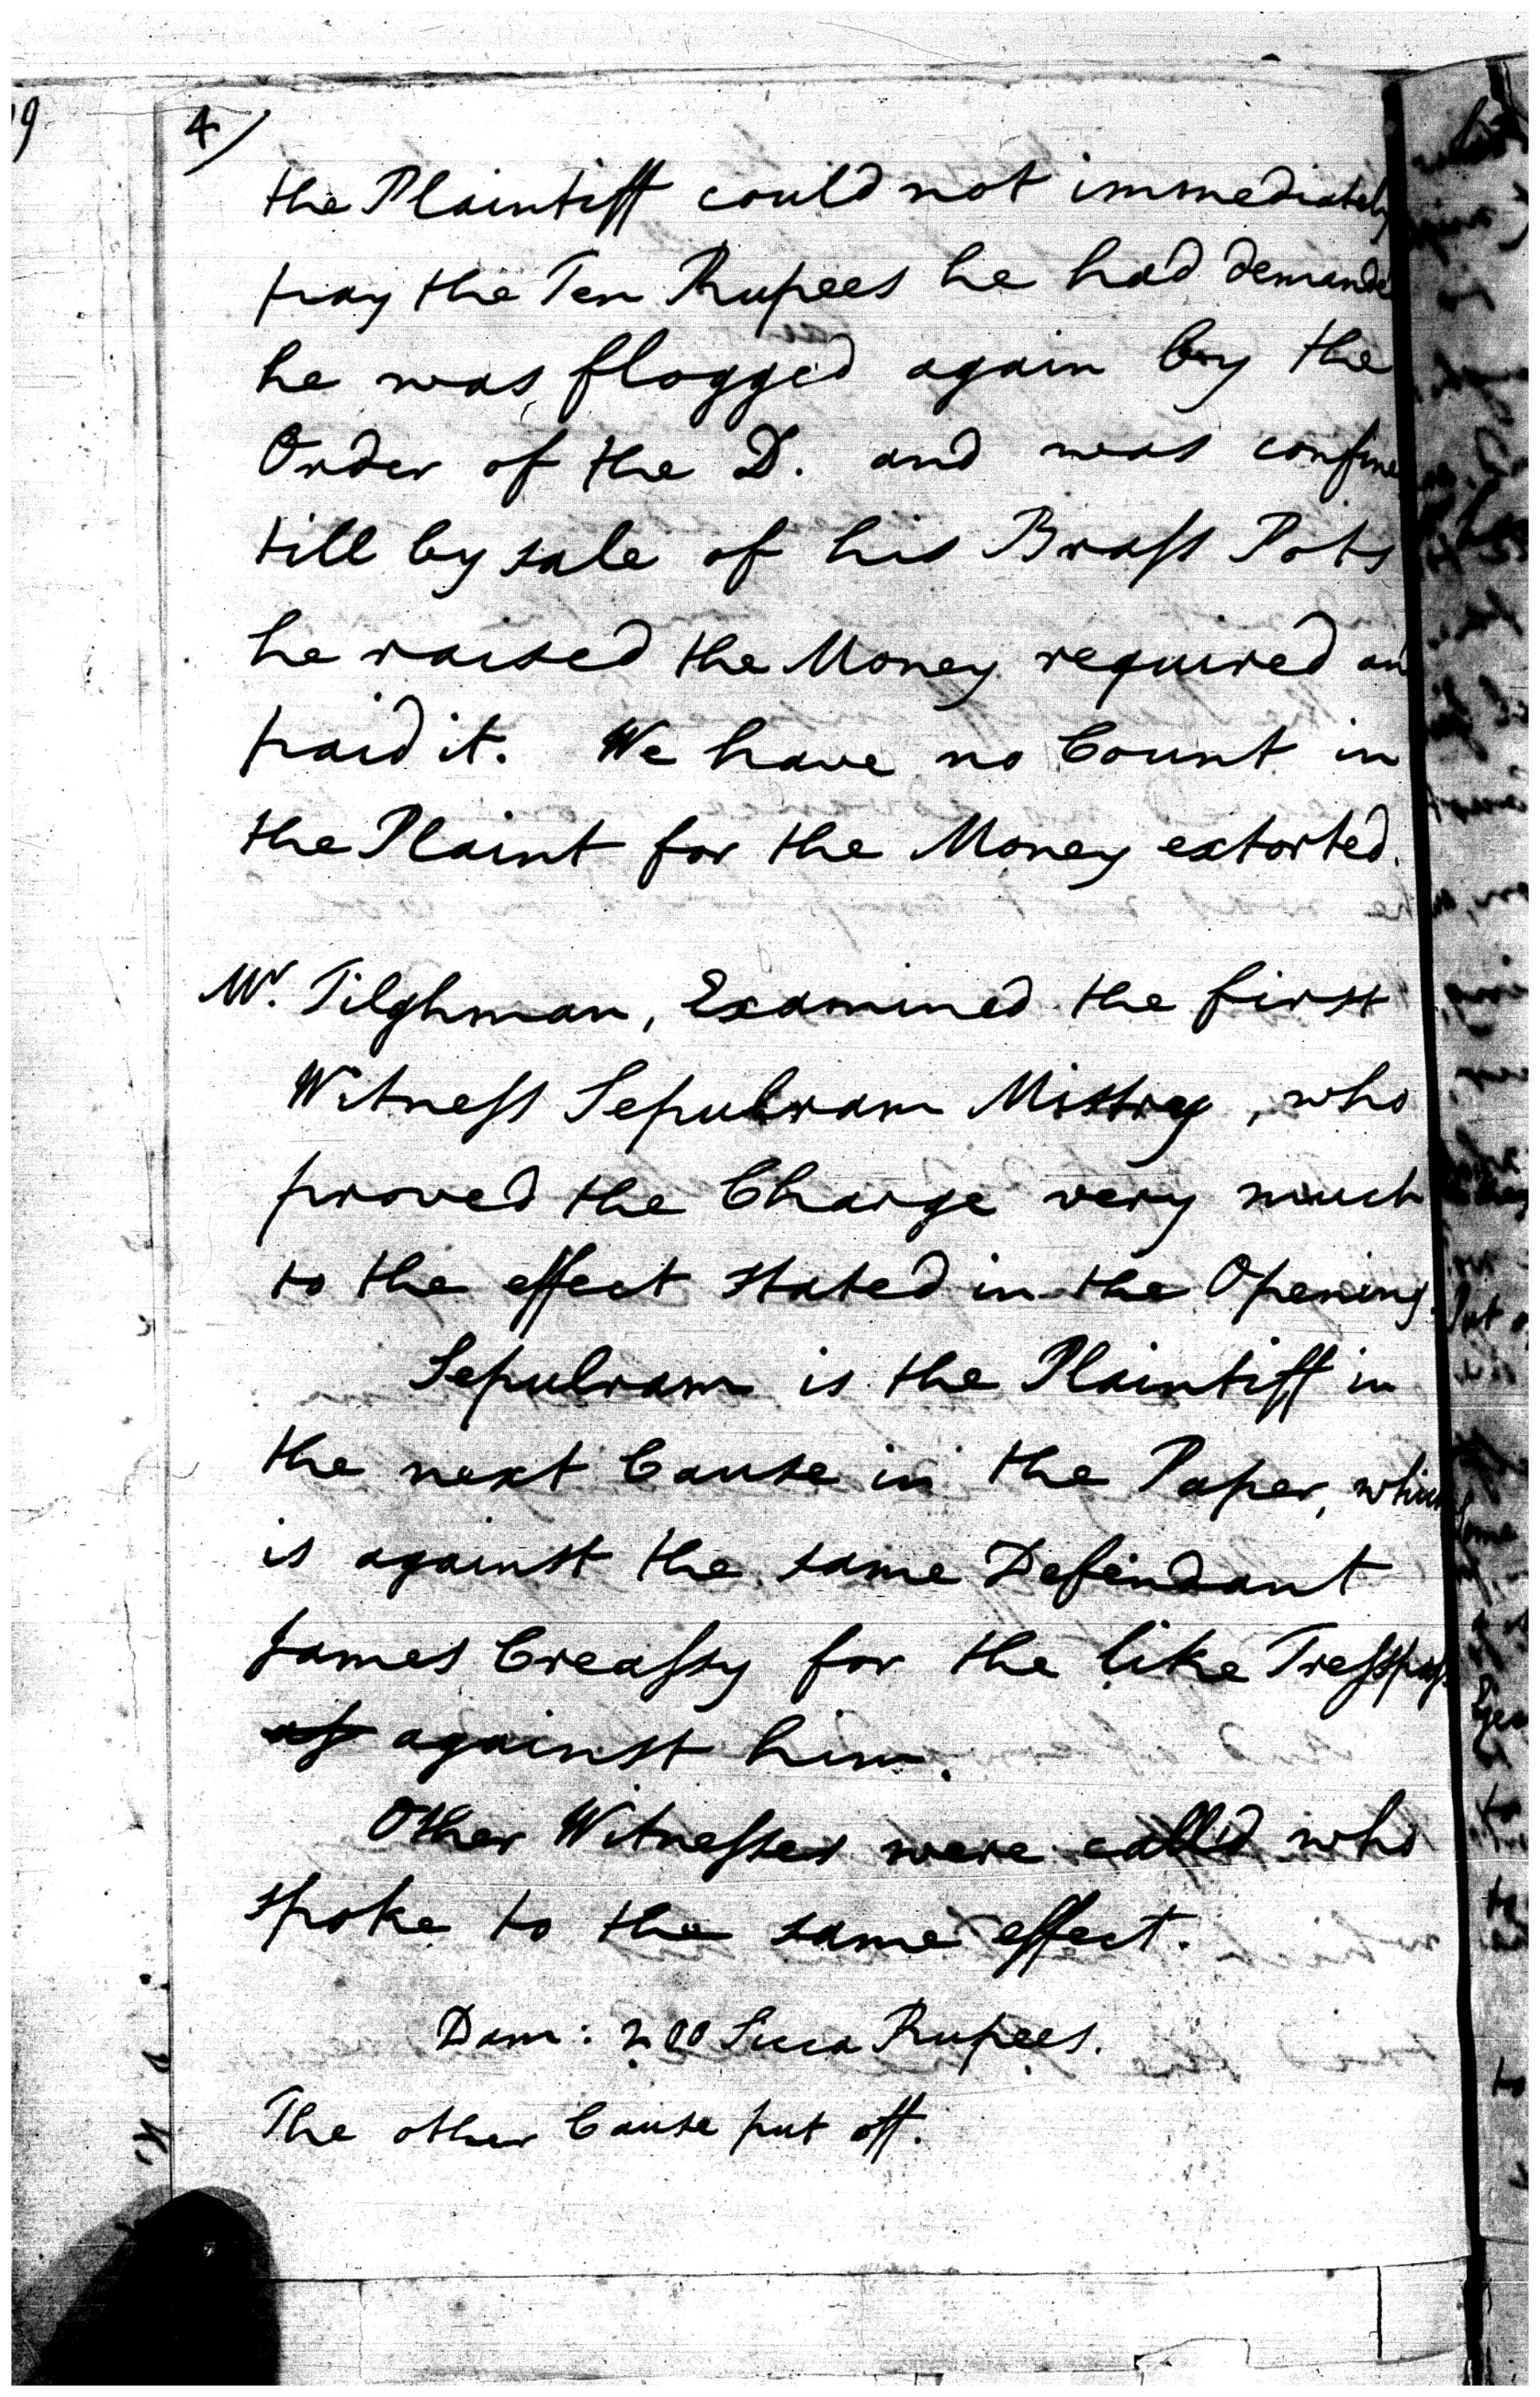 4/
the Plaintiff could not immediately
pay the Ten Rupees he had demande
he was flogged again by the
Order of the D. and was confine
till by sale of his Braſs Pots
he raised the Money required an
paid it. We have no Count in
the Plaint for the Money extorted.
Mr. Tilghman, Examined the first
Witneſs Sepulram Mistry, who
proved the Charge very much
to the effect stated in the Opening.
Sepulram is the Plaintiff in
the next Cause in the Paper, which
is against the same Defendant
James Creaſsy for the like Treſspaſs
against him.
Other Witneſses were call'd who
spoke to the same effect.
Dam: 200 Sicca Rupees.
The other Cause put off.